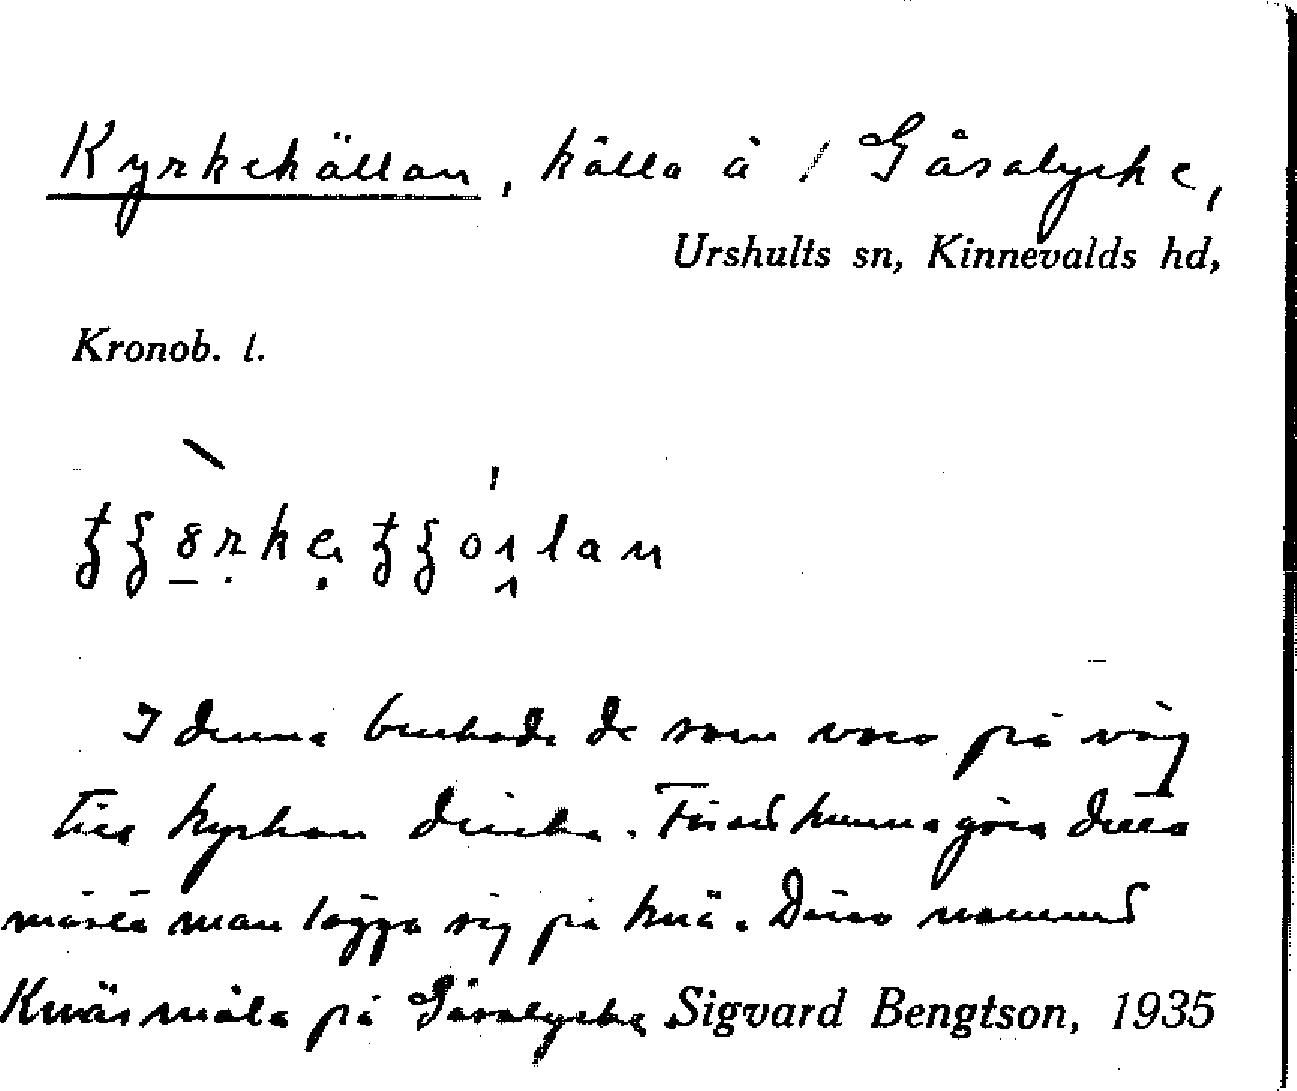 Kyrkekällan, källa å / Gåsalycke,
Urshults sn, Kinnevalds hd,
Kronob. l.
I denna brukade de som voro på väg
till kyrkan dricka. För att kunna göra detta
måste man lägga sig på knä. Därav namnet
på Gåsalycke Sigvard Bengtson, 1935